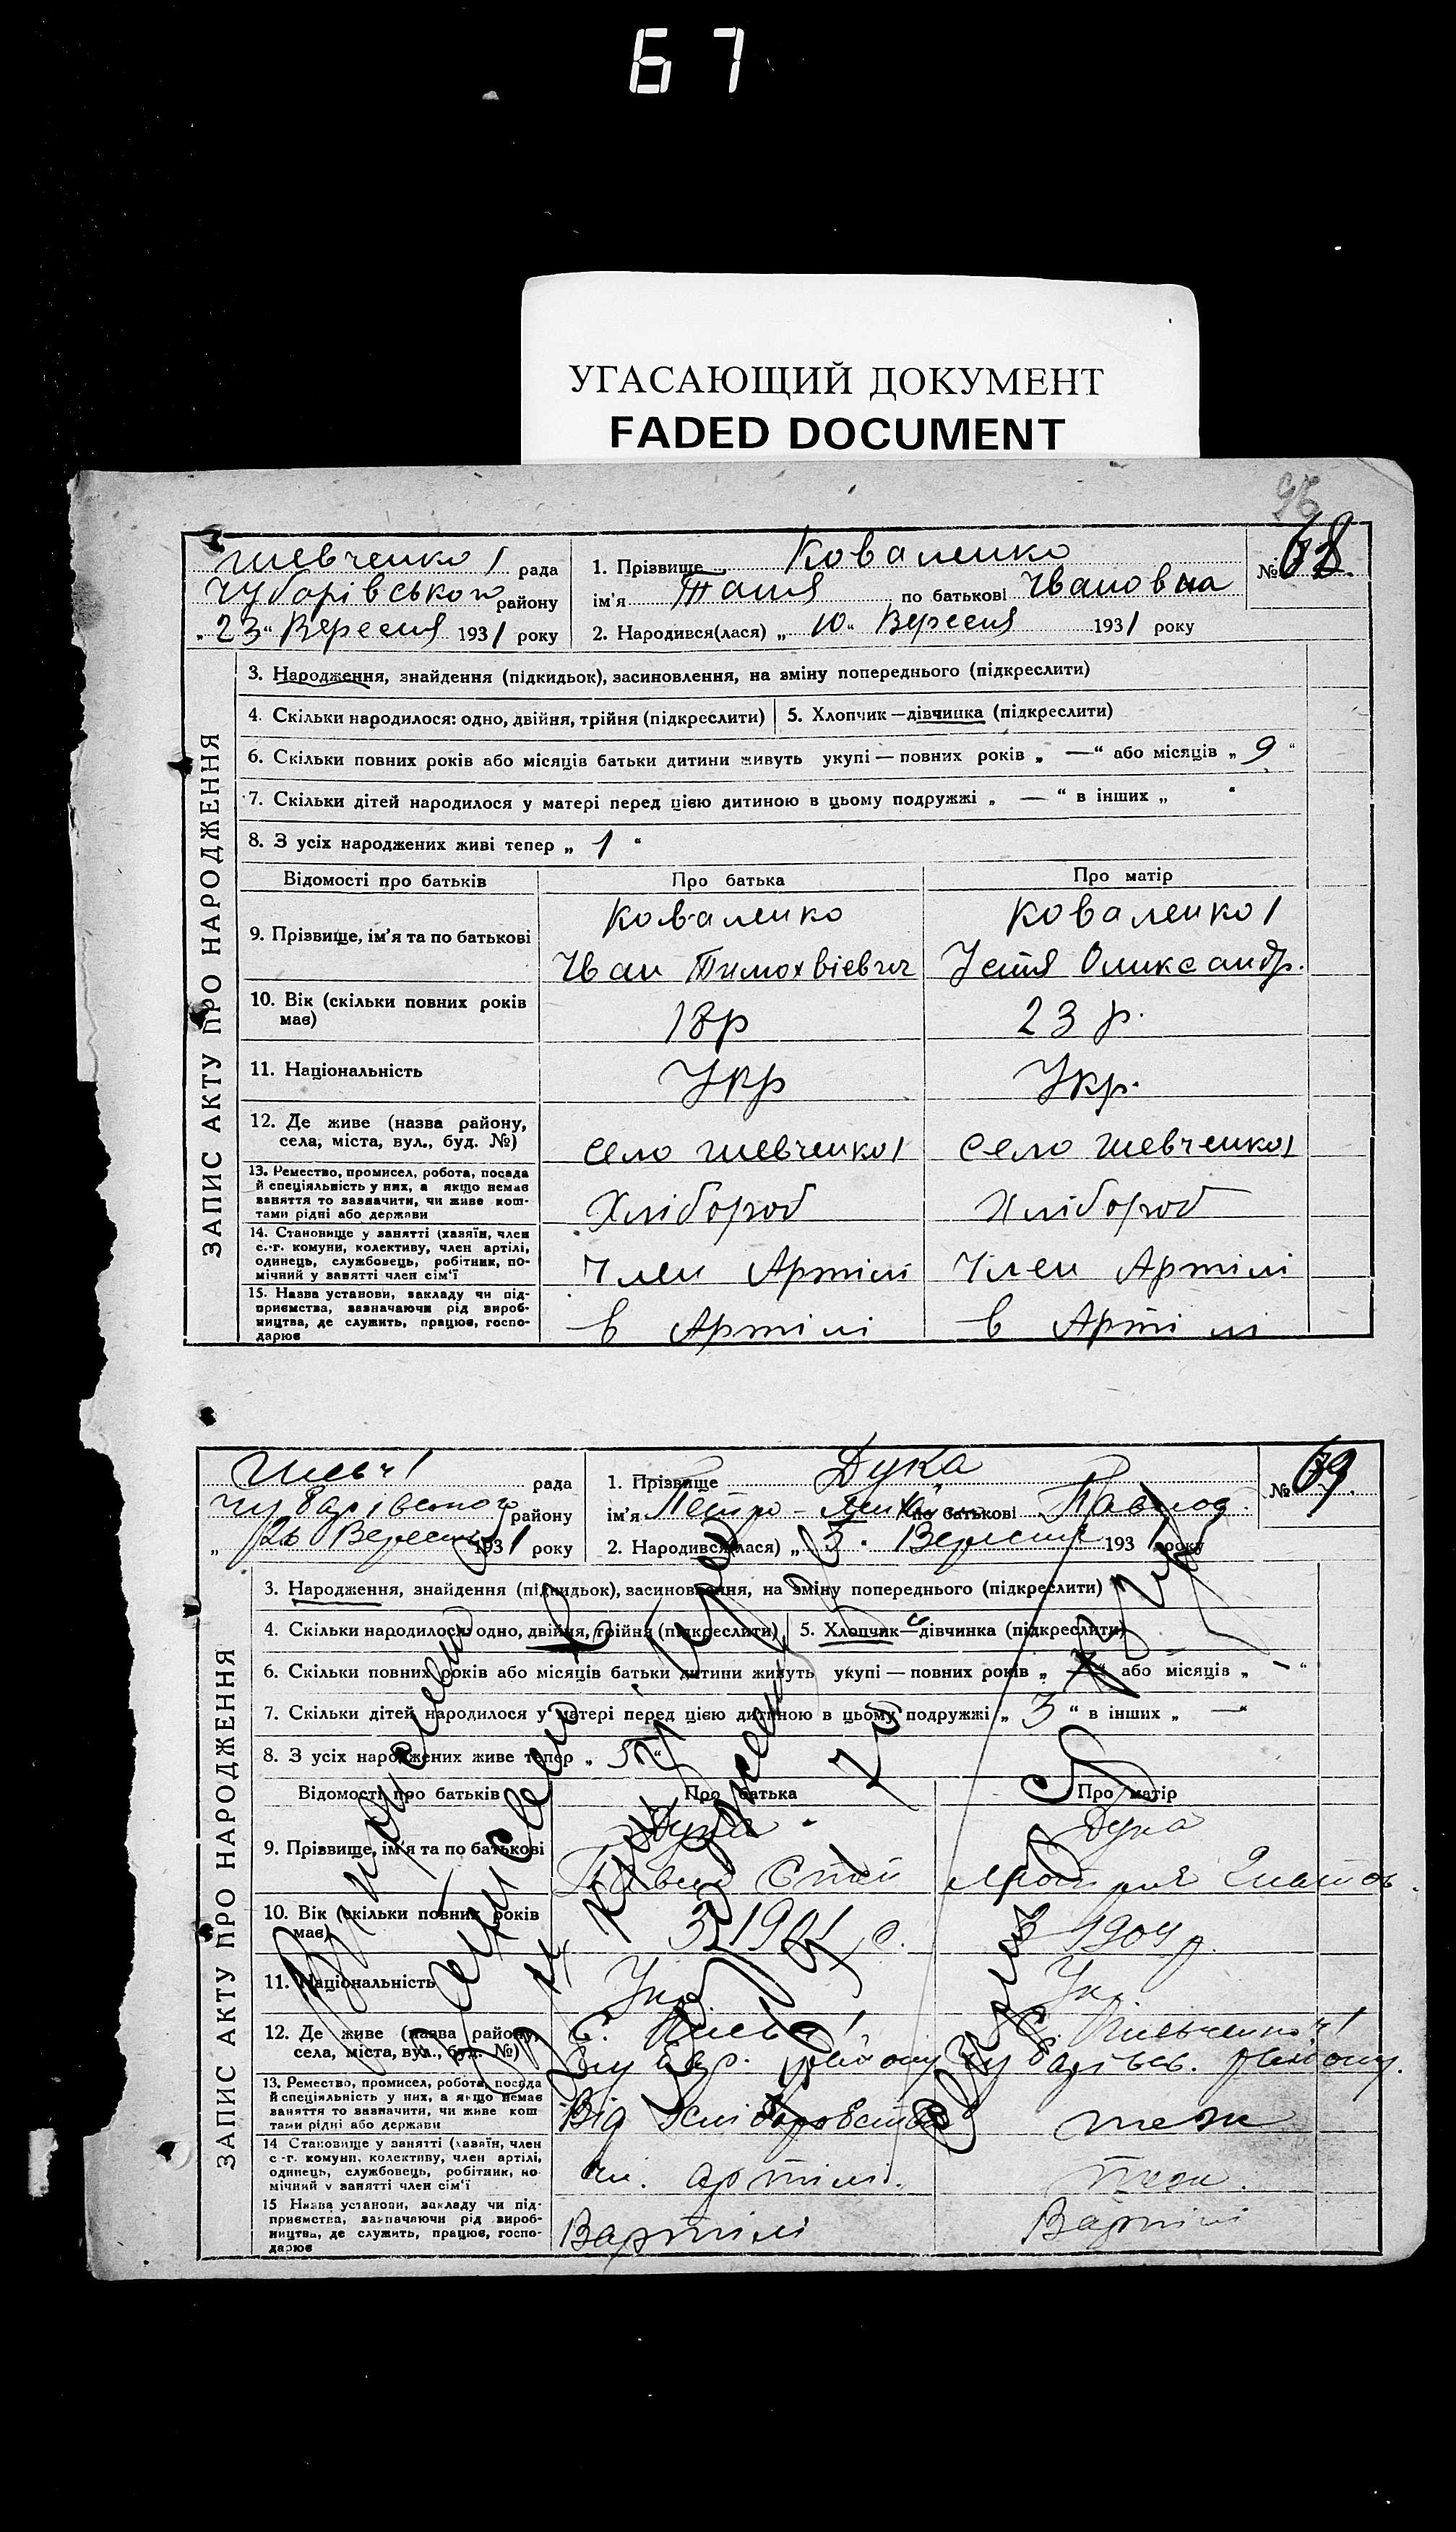 67
УГАСАЮЩИЙ ДОКУМЕНТ
FADED DOCUMENT
96
ЗАПИС АКТУ ПРО НАРОДЖЕННЯ
Шевченко 1 рада
Чубарівського району
„23“ Вересня 1931 року
1. Прізвище Коваленко
№ 68.
ім'я Таня по батькові Ивановна
2. Народився(лася) „10“ Вересня 1931 року
3. Народження, знайдення (підкидьок), засиновлення, на зміну попереднього (підкреслити)
4. Скільки народилося: одно, двійня, трійня (підкреслити) 5. Хлопчик—дівчинка (підкреслити)
6. Скільки повних років або місяців батьки дитини живуть укупі — повних років „ —“ або місяців „ 9 “
7. Скільки дітей народилося у матері перед цією дитиною в цьому подружжі „ — “ в інших „ “
8. З усіх народжених живі тепер „ 1 “
Відомості про батьків Про батька Про матір
9. Прізвище, ім'я та по батькові
Коваленко
Иван Тимохвієвич
Коваленко 1
Устя Олександр.
10. Вік (скільки повних років має) 18р 23 р.
11. Національність Укр Укр.
12. Де живе (назва району, села, міста, вул., буд. №) село Шевченко 1 село Шевченко 1
13. Ремество, промисел, робота, посада
й спеціяльність у них, а якщо немає
заняття то зазначити, чи живе кош-
тами рідні або держави
Хлібороб Хлібороб
14. Становище у занятті (хазяїн, член
с.-г. комуни, колективу, член артілі,
одинець, службовець, робітник, по-
мічний у занятті член сім'ї
Член Артілі Член Артілі
15. Назва установи, закладу чи під-
приємства, зазначаючи рід вироб-
ництва, де служить, працює, госпо-
дарює
в Артілі в Артілі
ЗАПИС АКТУ ПРО НАРОДЖЕННЯ
Шевч 1 рада
Чубарівського району
„26 Вересня 1931 року
1. Прізвище Дука
№ 69.
ім'я Петро - по батькові Павлов.
2. Народився(лася) „ 5 “ Вересня 1931 року
3. Народження, знайдення (підкидьок), засиновлення, на зміну попереднього (підкреслити)
4. Скільки народилося: одно, двійня, трійня (підкреслити) 5. Хлопчик—дівчинка (підкреслити)
6. Скільки повних років або місяців батьки дитини живуть укупі — повних років „ “ або місяців „ — “
7. Скільки дітей народилося у матері перед цією дитиною в цьому подружжі „ 3 “ в інших „ —“
8. З усіх народжених живе тепер „ 5 “
Відомості про батьків Про батька Про матір
9. Прізвище, ім'я та по батькові
Дука
Павло Степ
Дука
10. Вік (скільки повних років має) 1904 р.
11. Національність Укр. Ук.
12. Де живе (назва району, села, міста, вул., буд. №)
С. Шевч 1
Чубар. району
С. Шевченко 1
Чубарівсь. району.
13. Ремество, промисел, робота, посада
й спеціяльність у них, а якщо немає
заняття то зазначити, чи живе кош
тами рідні або держави
Від Хліборобства теж
14 Становище у занятті (хазяїн, член
с-г. комуни, колективу, член артілі,
одинець, службовець, робітник, по
мічний у занятті член сім'ї
чл. артілі. теж.
15 Назва установи, закладу чи під-
приємства, зазначаючи рід вироб-
ництва, де служить, працює, госпо-
дарює
Вартілі Вартілі